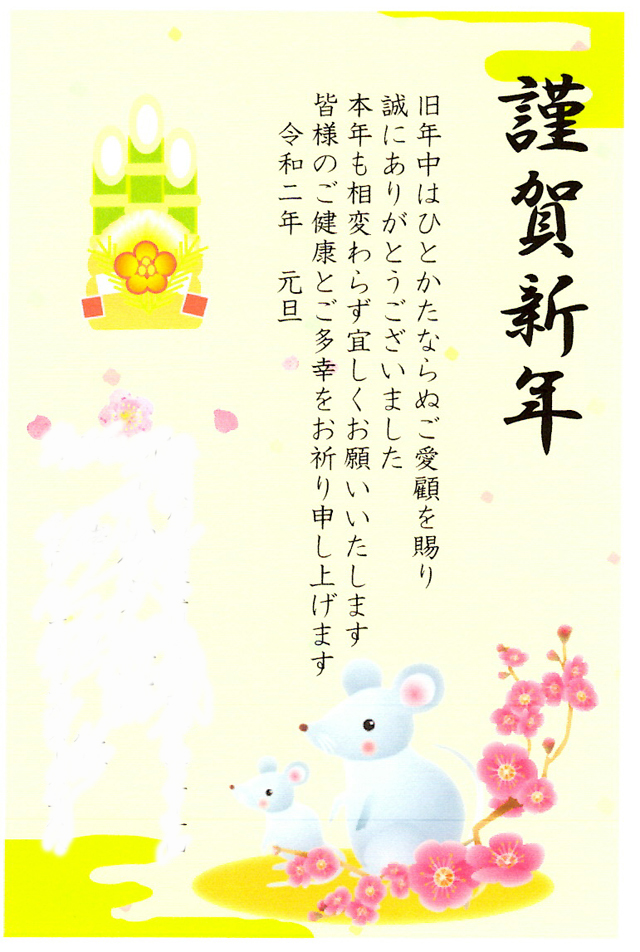 謹賀新年
旧年中はひとかたならぬご愛顧を賜り
誠にありがとうございました
本年も相変わらず宜しくお願いいたします
皆様のご健康とご多幸をお祈り申し上げます
令和二年　元旦